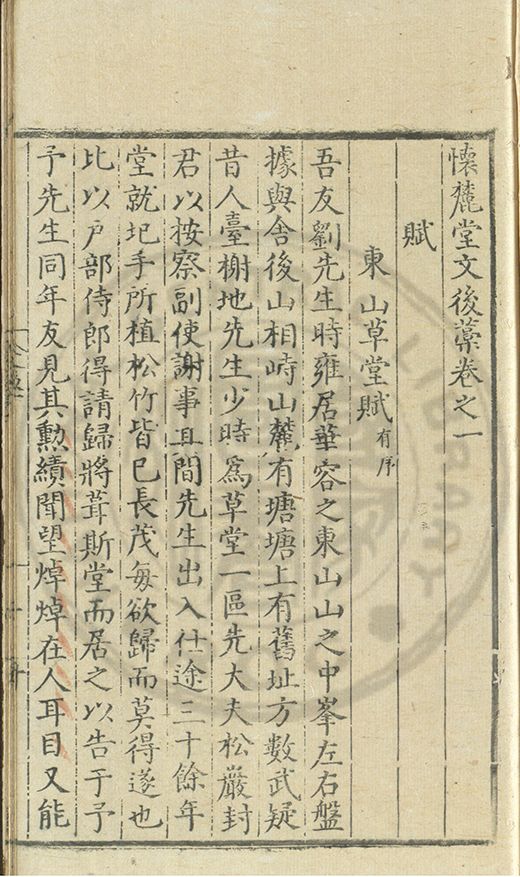 懷麓堂文後藁卷之一
賦
東山草堂賦有序
吾友劉先生時雍居華容之東山山之中峯左右盤
據與舍後山相峙山麓有塘塘上有舊址方數武疑
昔人臺榭地先生少時爲草堂一區先大夫松巖封
君以按察副使謝事其間先生出入仕途三十餘年
堂就圮手所植松竹皆已長茂每欲歸而莫得遂也
比以戶部侍郎得請歸將葺斯堂而居之以告于予
予先生同年友見其勳績聞望焯焯在人耳目又能